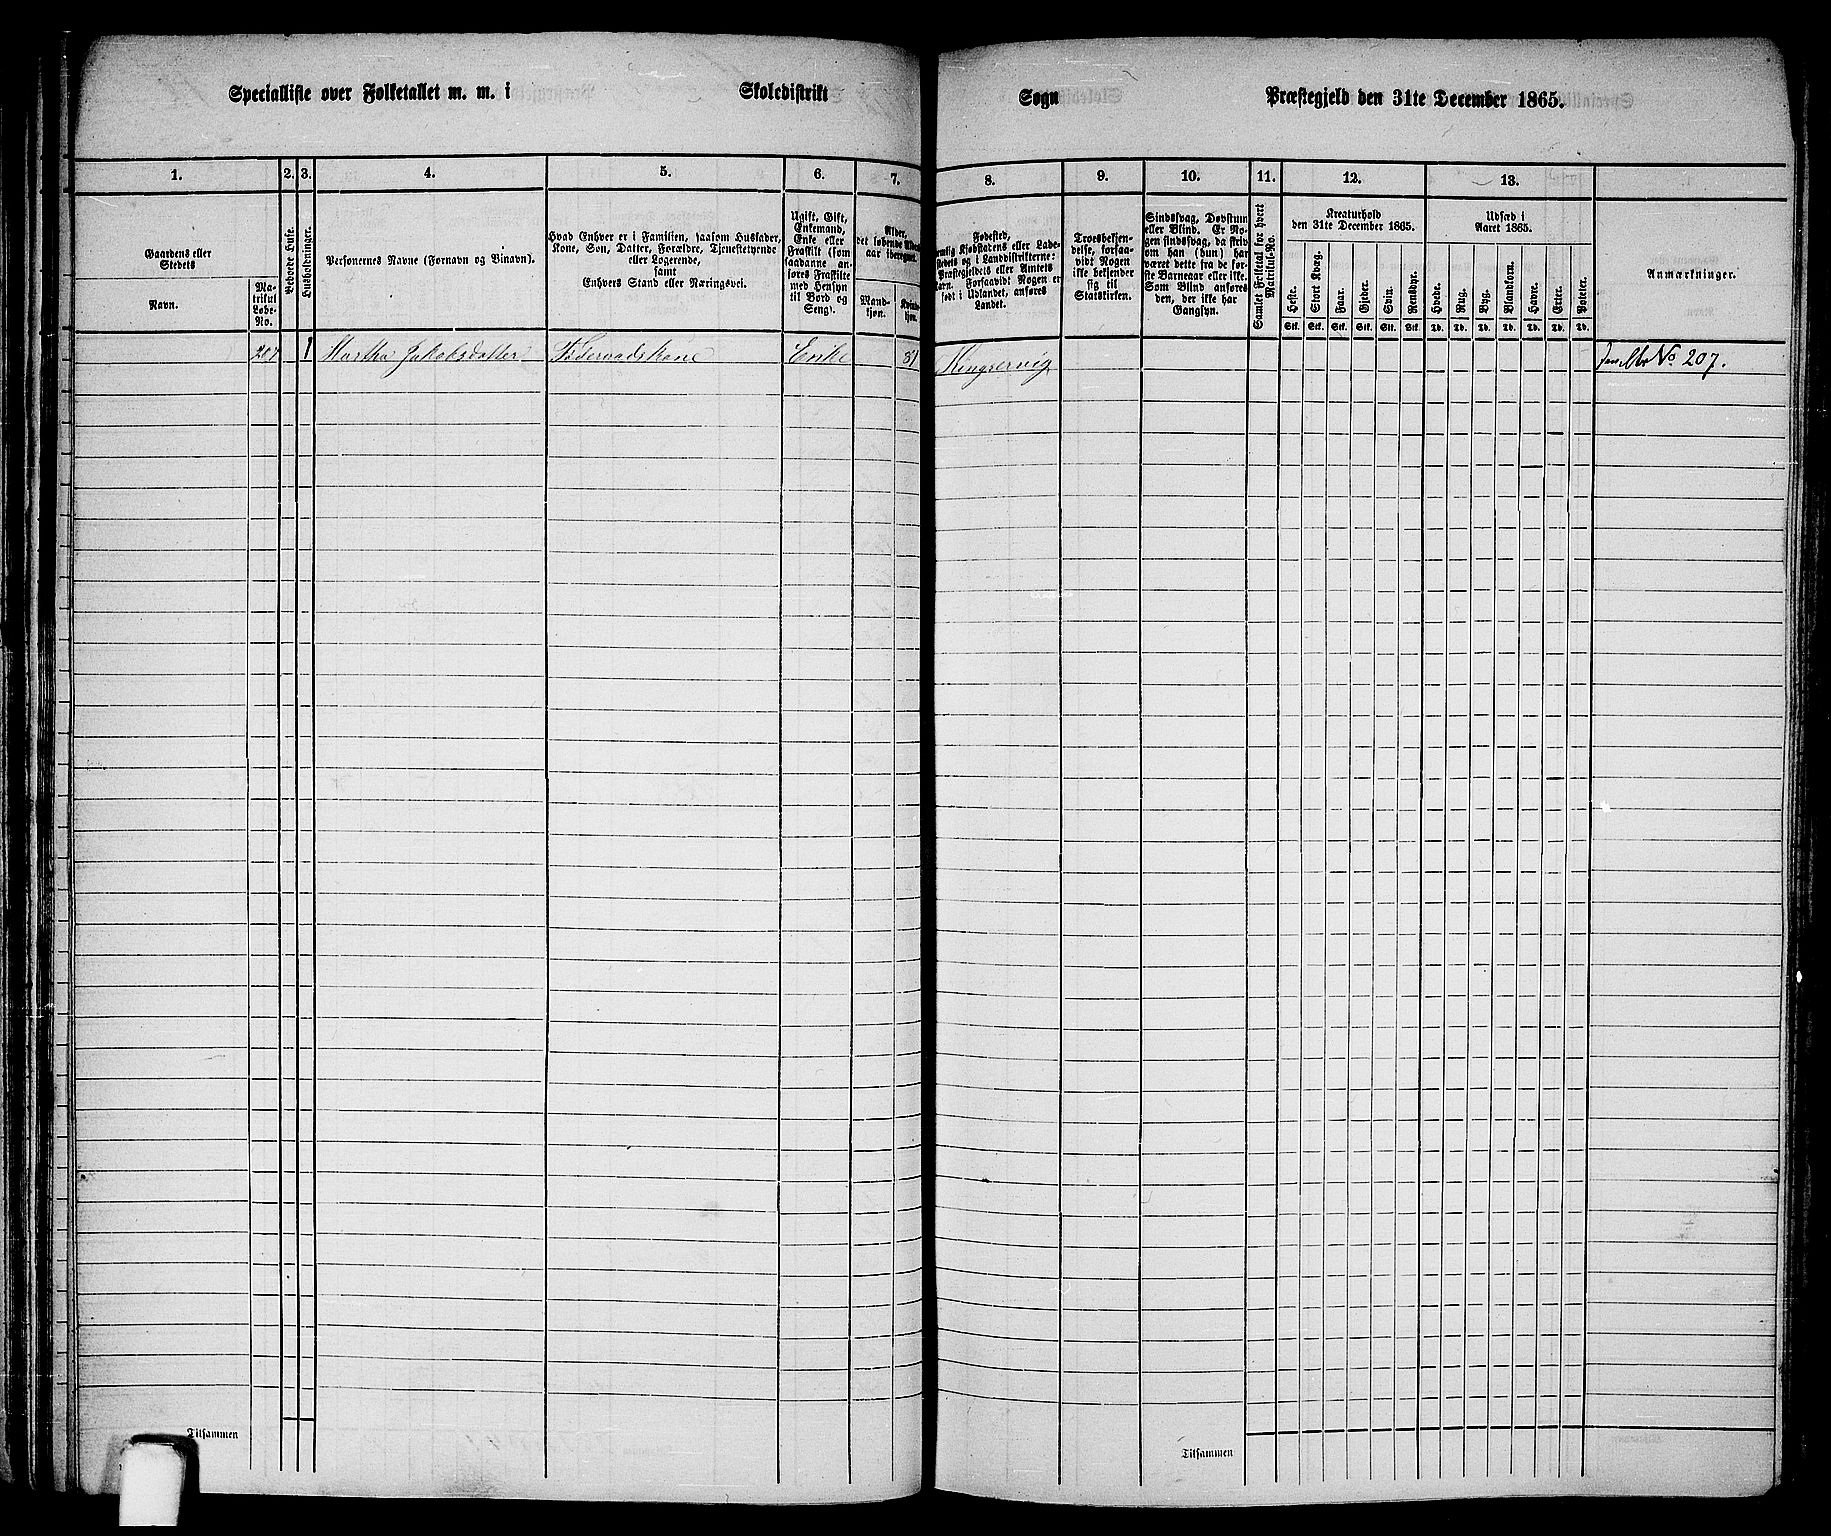 Specialliste over Folketallet m. m. i Skoledistrikt Sogn Præstegjeld den 31te December 1865.
1. 2. 3. 4. 5. 6. 7. 8. 9. 10. 11. 12. 13.
Gaardens eller
Stedets
Navn.
Ma-
trikul
Løbe-
No.
Beboede Huse.
Husholdninger.
Personernes Navne (Fornavn og Binavn).
Hvad Enhver er i Familien, saasom Husfader,
Kone, Søn, Datter, Forældre, Tjenestetyende
eller Logerende,
samt
Enhvers Stand eller Næringsvei.
Ugift, Gift,
Enkemand,
Enke eller
Fraskilt (som
saadanne an-
føres Fraskilte
med Hensyn
til Bord og
Seng).
Alder,
det løbende
aar iberegnet.
Mand-
kjøn.
Kvinde-
kjøn.
Fødested,
Kjøbstadens eller Lade-
stedets og i Landdistrikterne:
Præstegjeldets eller Amtets
Forsaavidt Nogen er
født i Udlandet, anføres
Landet.
Troesbekjen-
delse, forsaa-
vidt Nogen
ikke bekjender
sig til
Statskirken.
Sindssvag, Døvstum
eller Blind. Er No-
gen sindssvag, da skriv
om han (hun) har
været dette fra de før-
ste Barneaar eller ikke.
Som Blind anføres
den, der ikke har
Gangsyn.
Samlet Folketal for hvert
Matrikul-No.
Kreaturhold
den 31te December 1865.
Heste. Stort Kvæg. Faar. Gjeder. Svin. Rensdyr.
Stk. Stk. Stk. Stk. Stk. Stk.
Udsæd i
Aaret 1865.
Hvede. Rug. Byg. Blandkorn. Havre. Erter. Poteter.
Td. Td. Td. Td. Td. Td. Td.
Anmærkninger.
207 1 Martha Jakobsdatter Føderaadskone Enke 81 Kingservig No. 207.
Tilsammen Tilsammen